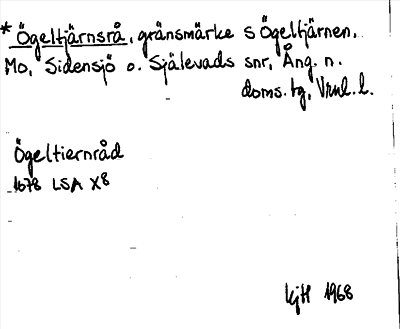 * Ögeltjärnsrå, gränsmärke S Ögeltjärnen,
Mo, Sidensjö o. Själevads snr, Ång. n.
doms. tg, Vrnl. l.
Ögeltiernråd
1678 LSA X8
KjH 1968